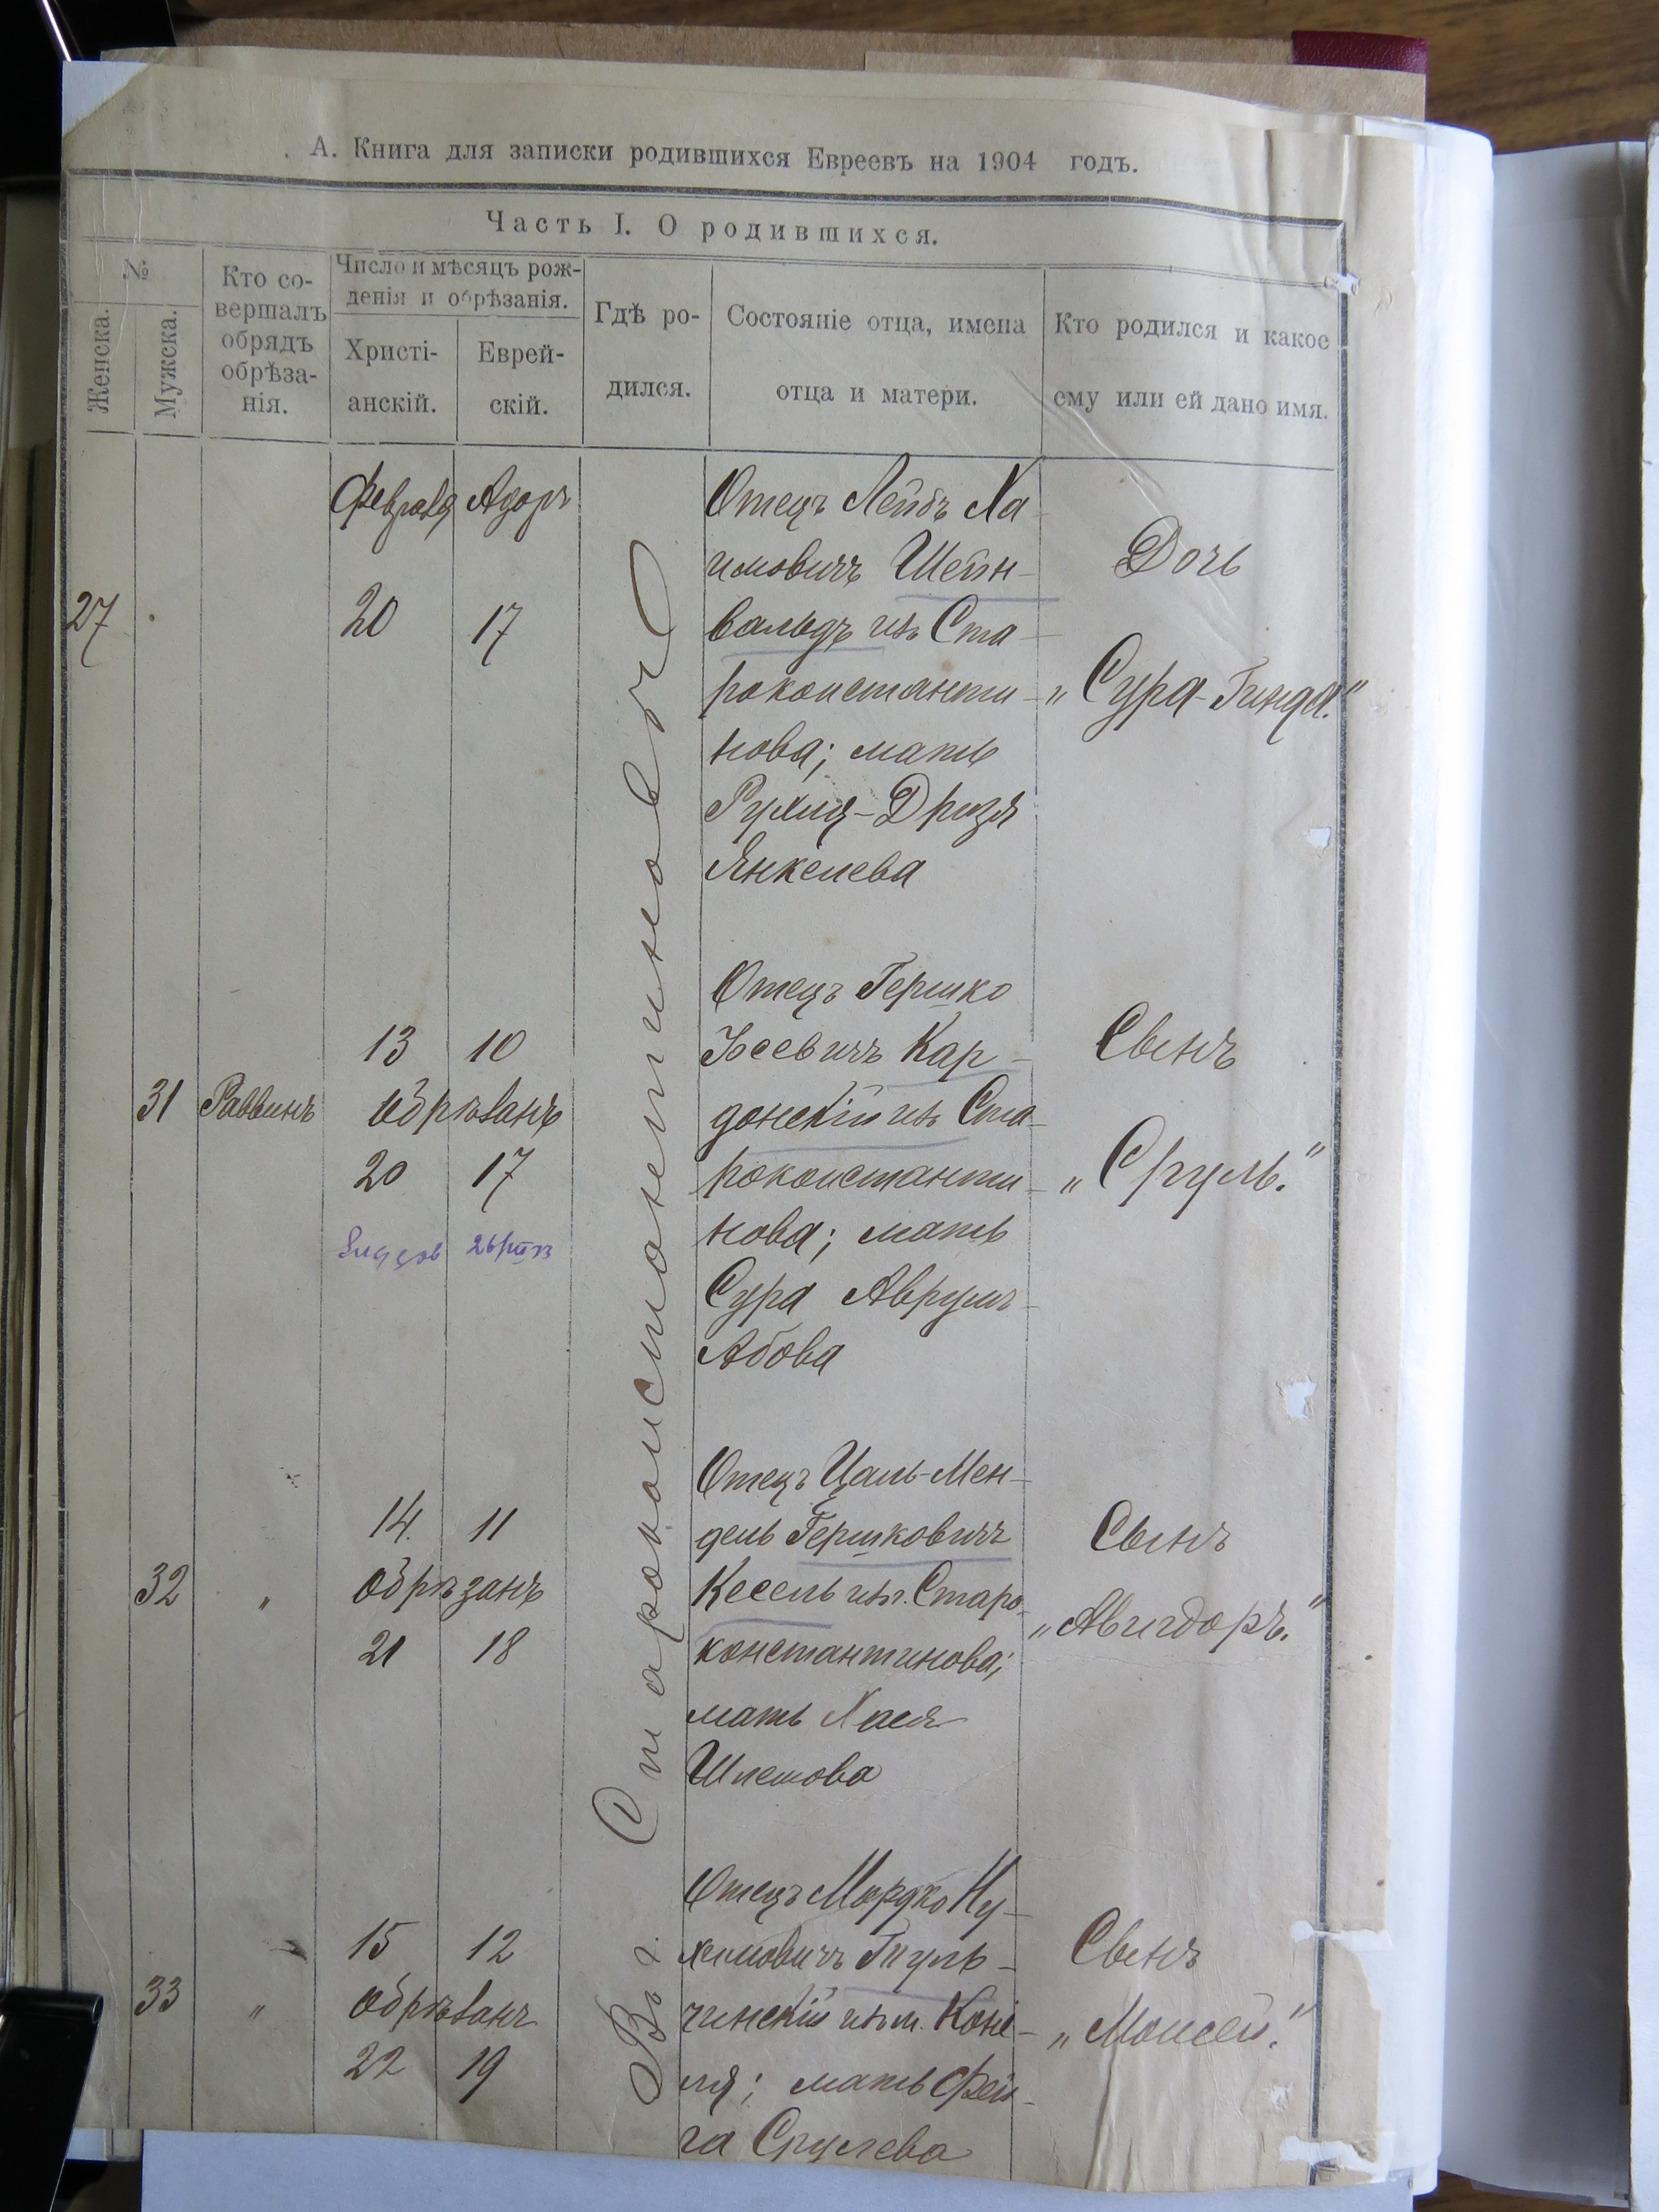 А. Книга для записки родившихся Евреевъ на 1904 годъ.
Часть I. О родившихся.
№
Женска.
Мужска.
Кто со-
вершалъ
обрядъ
обрѣза-
нія.
Число и мѣсяцъ рож-
денія и обрѣзанія.
Христі-
анскій.
Еврей-
скій.
Гдѣ ро-
дился.
Состояніе отца, имена
отца и матери.
Кто родился и какое
ему или ей дано имя.
Въ г. Староконстантиновѣ
Февраля Адоръ
27
20 17
Отецъ Лейбъ Ха-
имовичъ Шейн-
вальдъ изъ Ста-
роконстанти-
нова; мать
Рухля-Дризя
Янкелева
Дочь
„Сура-Гинда."
31 Раввинъ
13 10
Обрѣзанъ
20 17
Отецъ Гершко
Іосевичъ Кар-
донскій изъ Ста-
роконстанти-
нова; мать
Сура Аврумъ-
Абова
Сынъ
„Сруль."
32 „
14. 11
Обрѣзанъ
21 18
Отецъ Цаль-Мен-
дель Гершковичъ
Кесель изъ г. Старо-
константинова;
мать Хася
Шлемова
Сынъ
„Авигдоръ."
33 „
15 12
Обрѣзанъ
22 19
Отецъ Мордко Ну-
химовичъ Туль-
чинскій изъ м. Коне-
ля; мать Фей-
га Срулева
Сынъ
„Моисей."